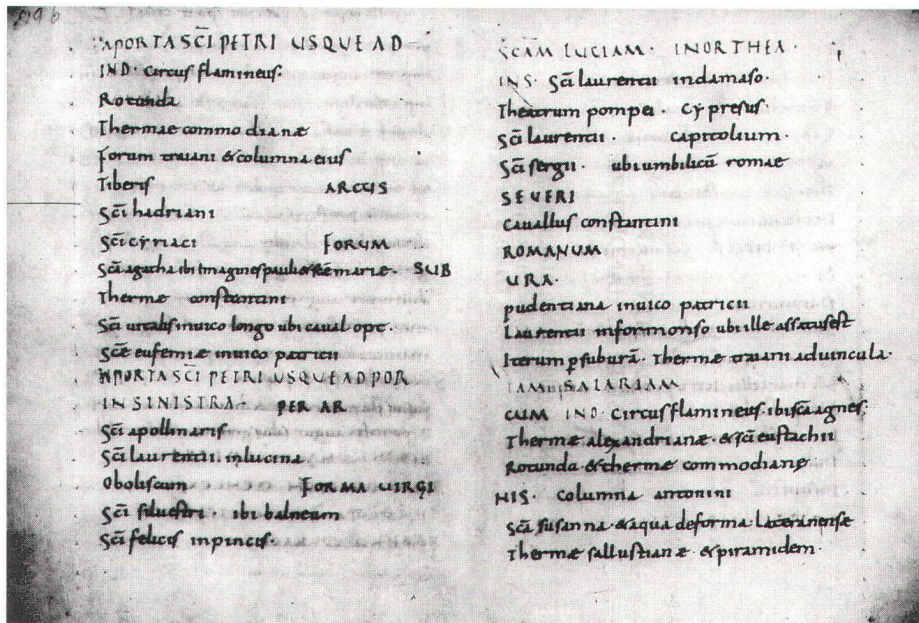 APORTA SCI PETRI USQUE AD
IND· Circus flamineus·
Rotunda
Thermae commodianæ
forum traiani & columna eius
Tiberis ARCUS
Sci hadriani
Sci cyriaci FORUM
Sca agatha ibi imagines pauli & sce marie· SUB
Thermæ constantini
Sci uitalis inuico longo ubi caual opt·
Sce eufemiæ inuico patricii
APORTA SCI PETRI USQUE AD POR
IN SINISTRA· PER AR
Sci apollinaris
Sci laurentii· inlucina
Oboliscum FORMA UIRGI
Sci siluestri ibi balneum
Sci felicis inpincis·
SCAM LUCIAM· IN ORTHEA·
INS· Sci laurentii indamaso·
Theatrum pompei Cypresus·
Sci laurentii· capitolium
Sci sergii· ubi umbilicū romae
SEUERI
Cauallus constantini
ROMANUM
URA·
pudentiana inuico patricii
Laurentii informonso ubi ille assatus est
Iterum p suburā· Thermæ traiani aduincula·
TAM SALARIAM
CUM IND· Circus flamineus· ibi sca agnes·
Thermæ alexandrianæ· & sci eustachii
Rotunda & thermæ commodianę
NIS· Columna antonini
Sca susanna· & aqua deforma lateranense
Thermæ sallustianæ· & piramidem·